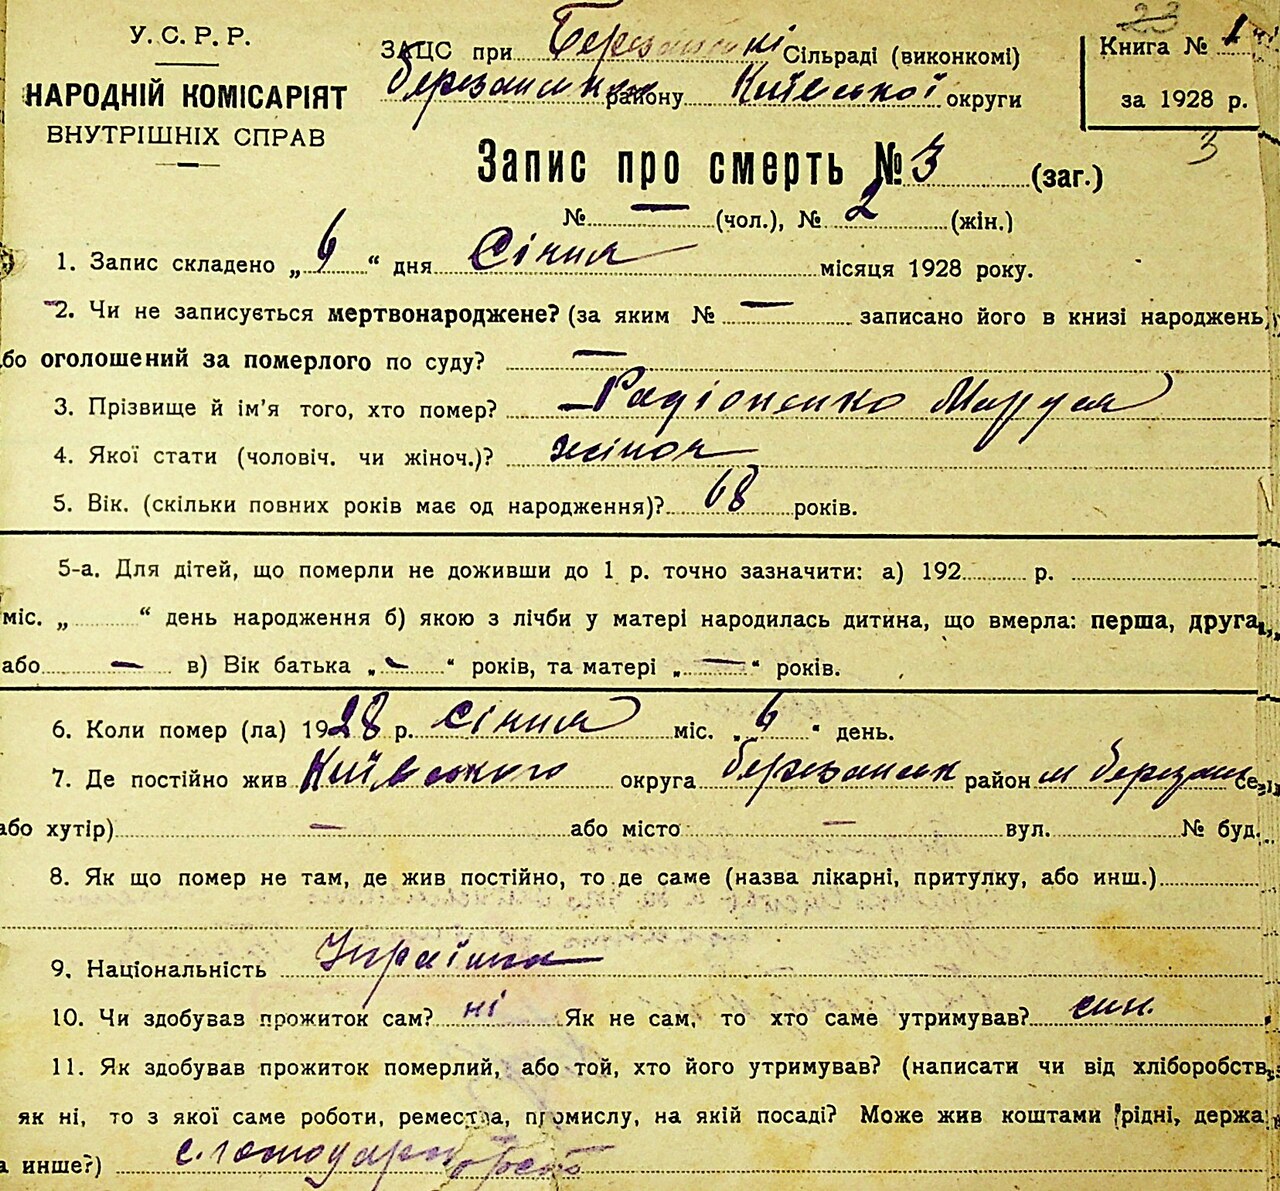 У. С. Р. Р.
НАРОДНІЙ КОМІСАРІЯТ
ВНУТРІШНІХ СПРАВ
ЗАЦС при Березанські Сільраді (виконкомі)
району Київської округи
23 1
Книга №
за 1928 р.
3
Запис про смерть № 3 (заг.)
№ — (чол.), № 2 (жін.)
1. Запис складено „6“ дня Січня місяця 1928 року.
2. Чи не записується мертвонароджене? (за яким № — записано його в книзі народжень,
або оголошений за померлого по суду? —
3. Прізвище й ім'я того, хто помер? Радіоненко Маруся
4. Якої стати (чоловіч. чи жіноч.)? жіноч
5. Вік. (скільки повних років має од народження)? 68 років.
5-а. Для дітей, що померли не доживши до 1 р. точно зазначити: а) 192 р.
міс. „ “ день народження б) якою з лічби у матері народилась дитина, що вмерла: перша, друга,
або — в) Вік батька „—“ років, та матері „—“ років.
6. Коли помер (ла) 1928 р. Січня міс. „6“ день.
7. Де постійно жив Київського округа Березанськ район м Березань се
або хутір) — або місто — вул. № буд.
8. Як що помер не там, де жив постійно, то де саме (назва лікарні, притулку, або инш.)
9. Національність Українка
10. Чи здобував прожиток сам? ні Як не сам, то хто саме утримував? син.
11. Як здобував прожиток померлий, або той, хто його утримував? (написати чи від хліборобств,
як ні, то з якої саме роботи, ремества, промислу, на якій посаді? Може жив коштами рідні, держа
а инше?)